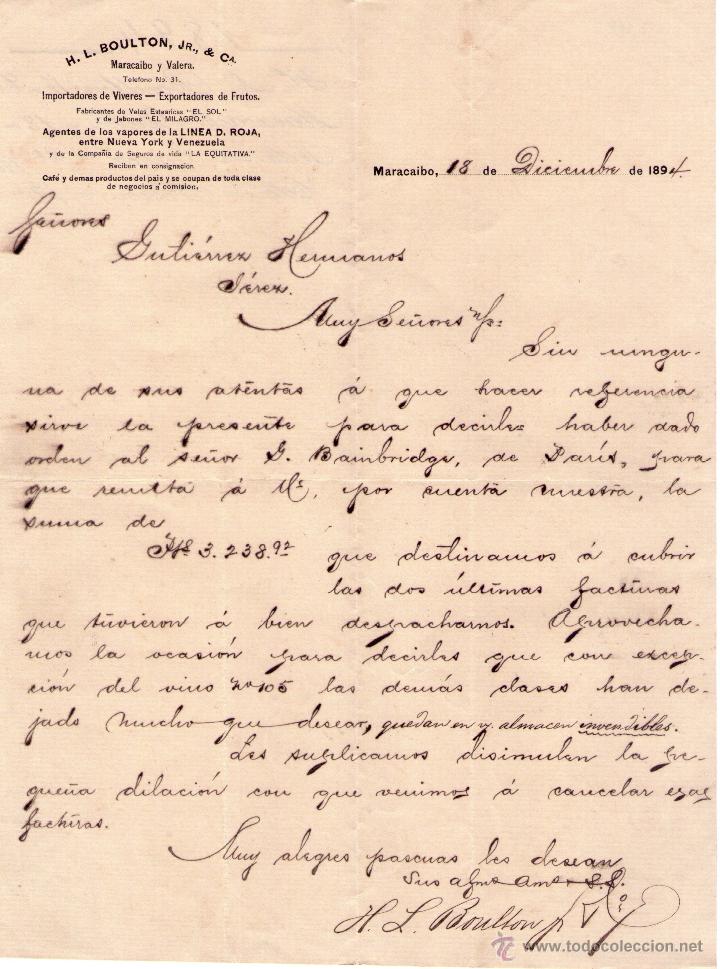 H. L. BOULTON, JR., & CA.
Maracaibo y Valera.
Telefono No. 31.
Importadores de Viveres — Exportadores de Frutos.
Fabricantes de Velas Estearicas "EL SOL"
y de Jabones "EL MILAGRO."
Agentes de los vapores de la LINEA D. ROJA,
entre Nueva York y Venezuela
y de la Compañia de Seguros de vida "LA EQUITATIVA."
Reciben en consignacion
Café y demas productos del pais y se ocupan de toda clase
de negocios á comision.
Maracaibo, 18 de Diciembre de 1894.
Señores
Gutiérrez Hermanos
Jérez.
Muy Señores n/s:
Sin ningu-
na de sus atentas á que hacer referencia
sirve la presente para decirles haber dado
orden al señor G. Bainbridge, de París, para
que remita á Us., por cuenta nuestra, la
suma de
3.238.92 que destinamos á cubrir
las dos últimas facturas
que tuvieron á bien despacharnos. Aprovecha-
mos la ocasión para decirles que con excep-
ción del vino No 105 las demás clases han de-
jado mucho que desear, quedan en n/. almacen invendibles.
Les suplicamos disimulen la pe-
queña dilación con que venimos á cancelar esas
facturas.
Muy alegres pascuas les desean
Sus afmos ams. S.S.
H. L. Boulton Jr
www.todocoleccion.net